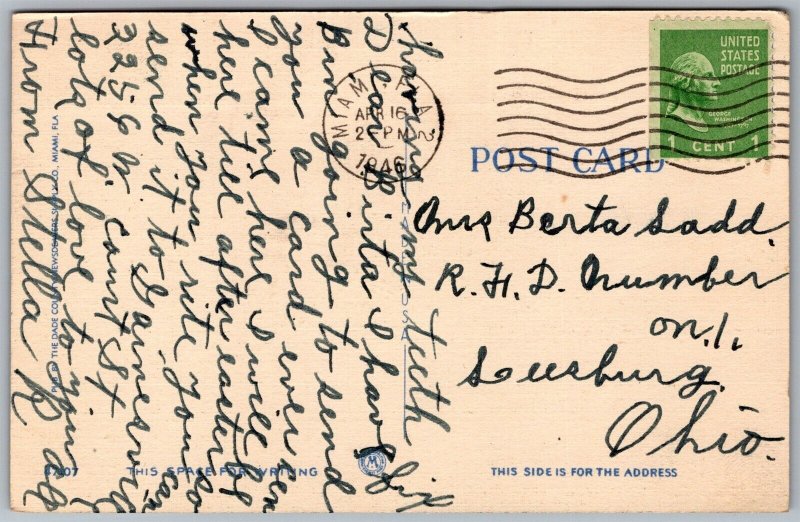 having my teeth fix
Dear Birta I have
Bin going to send
you a card ever sen
I came here I will be
here till after easter
when you rite you can
send it to
W. Court St
lots of love to you all
From Stella R
PUB. BY THE DADE COUNTY NEWSDEALERS SUPPLY CO., MIAMI, FLA.
MIAMI, FLA.
APR 16
2 PM
1946
UNITED
STATES
POSTAGE
GEORGE
WASHINGTON
1 CENT 1
POST CARD
Berta Ladd
R.F.D. Number
on 1.
Leesburg.
Ohio.
THIS SPACE FOR WRITING
THIS SIDE IS FOR THE ADDRESS